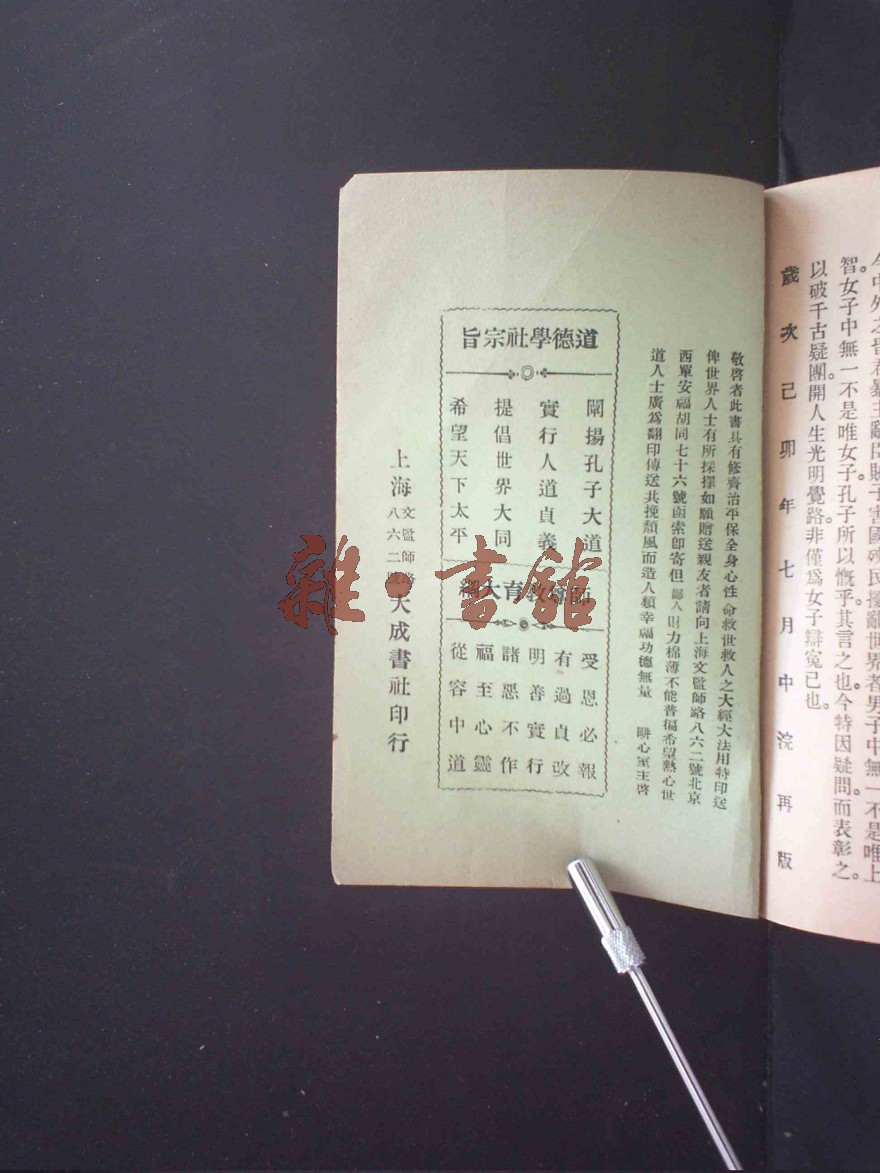 智。女子中無一不是唯女子孔子所以慨乎其言之也。今特因疑問而表彰之。
以破千古疑團。開人生光明覺路。非僅爲女子辯冤已也。
歲次己卯年七月中浣再版
敬啓者此書具有修齊治平保全身心性命救世救人之大經大法用特印送
俾世界人士有所採擇如願贈送親友者請向上海文監師路八六二號北京
西單安福胡同七十六號函索卽寄但鄙人財力棉薄不能普徧希望熱心世
道人士廣爲翻印傳送共挽頽風而造人類幸福功德無量 畊心室主啓
道德學社宗旨
闡揚孔子大道
實行人道貞義
提倡世界大同
希望天下太平
師尊教育大綱
受恩必報
有過貞改
明善實行
諸惡不作
福至心靈
從容中道
上海文監師路八六二號大成書社印行
雜·書館